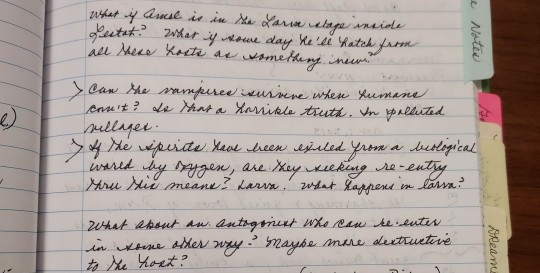 what if Amel is in the Larva stage inside
Lestat? What if some day he'll hatch from
all these hosts as something new?
> Can the vampires survive when humans
can't? Is that a horrible truth. In polluted
villages.
> If the spirits have been exiled from a biological
world by oxygen, are they seeking re-entry
thru this means? Larva. What happens in larva?
What about an antagonist who can re-enter
in some other way? Maybe more destructive
to the host?
e Notes
Dreams
e)